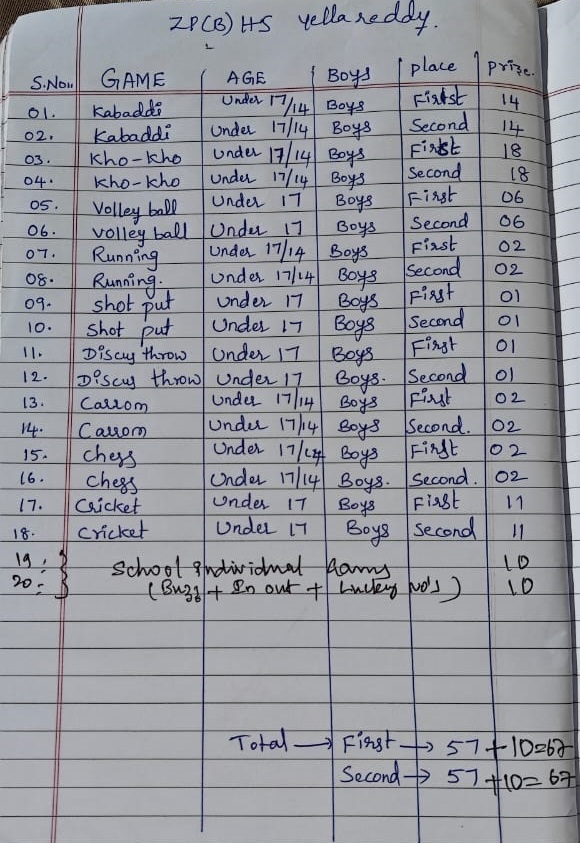 ZP(B) HS yella reddy.
S.No.. GAME AGE Boys place prize.
01. Kabaddi Under 17/14 Boys First 14
02. Kabaddi Under 17/14 Boys Second 14
03. Kho-Kho Under 17/14 Boys First 18
04. Kho-Kho Under 17/14 Boys Second 18
05. Volley ball Under 17 Boys First 06
06. Volley ball Under 17 Boys Second 06
07. Running Under 17/14 Boys First 02
08. Running. Under 17/14 Boys Second 02
09. Shot put Under 17 Boys First 01
10. Shot put Under 17 Boys Second 01
11. Discus throw Under 17 Boys First 01
12. Discus throw Under 17 Boys. Second 01
13. Carrom Under 17/14 Boys First 02
14. Carrom Under 17/14 Boys Second. 02
15. Chess Under 17/14 Boys First 02
16. Chess Under 17/14 Boys. Second. 02
17. Cricket Under 17 Boys First 11
18. Cricket Under 17 Boys Second 11
19. School individual 10
20. + In out + Lucky No's) 10
Total → First → 57 + 10 = 67
Second → 57 + 10 = 67